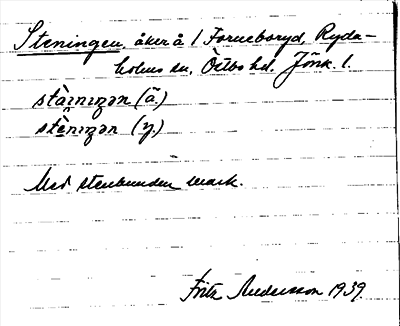 Steningen, åker å 1 Forneboryd, Ryda-
holms sn, Östbo hd. Jönk. l.
stàinıŋən (ä.)
stènıŋən (y.)
Med stenbunden mark.
Fritz Andersson 1939.